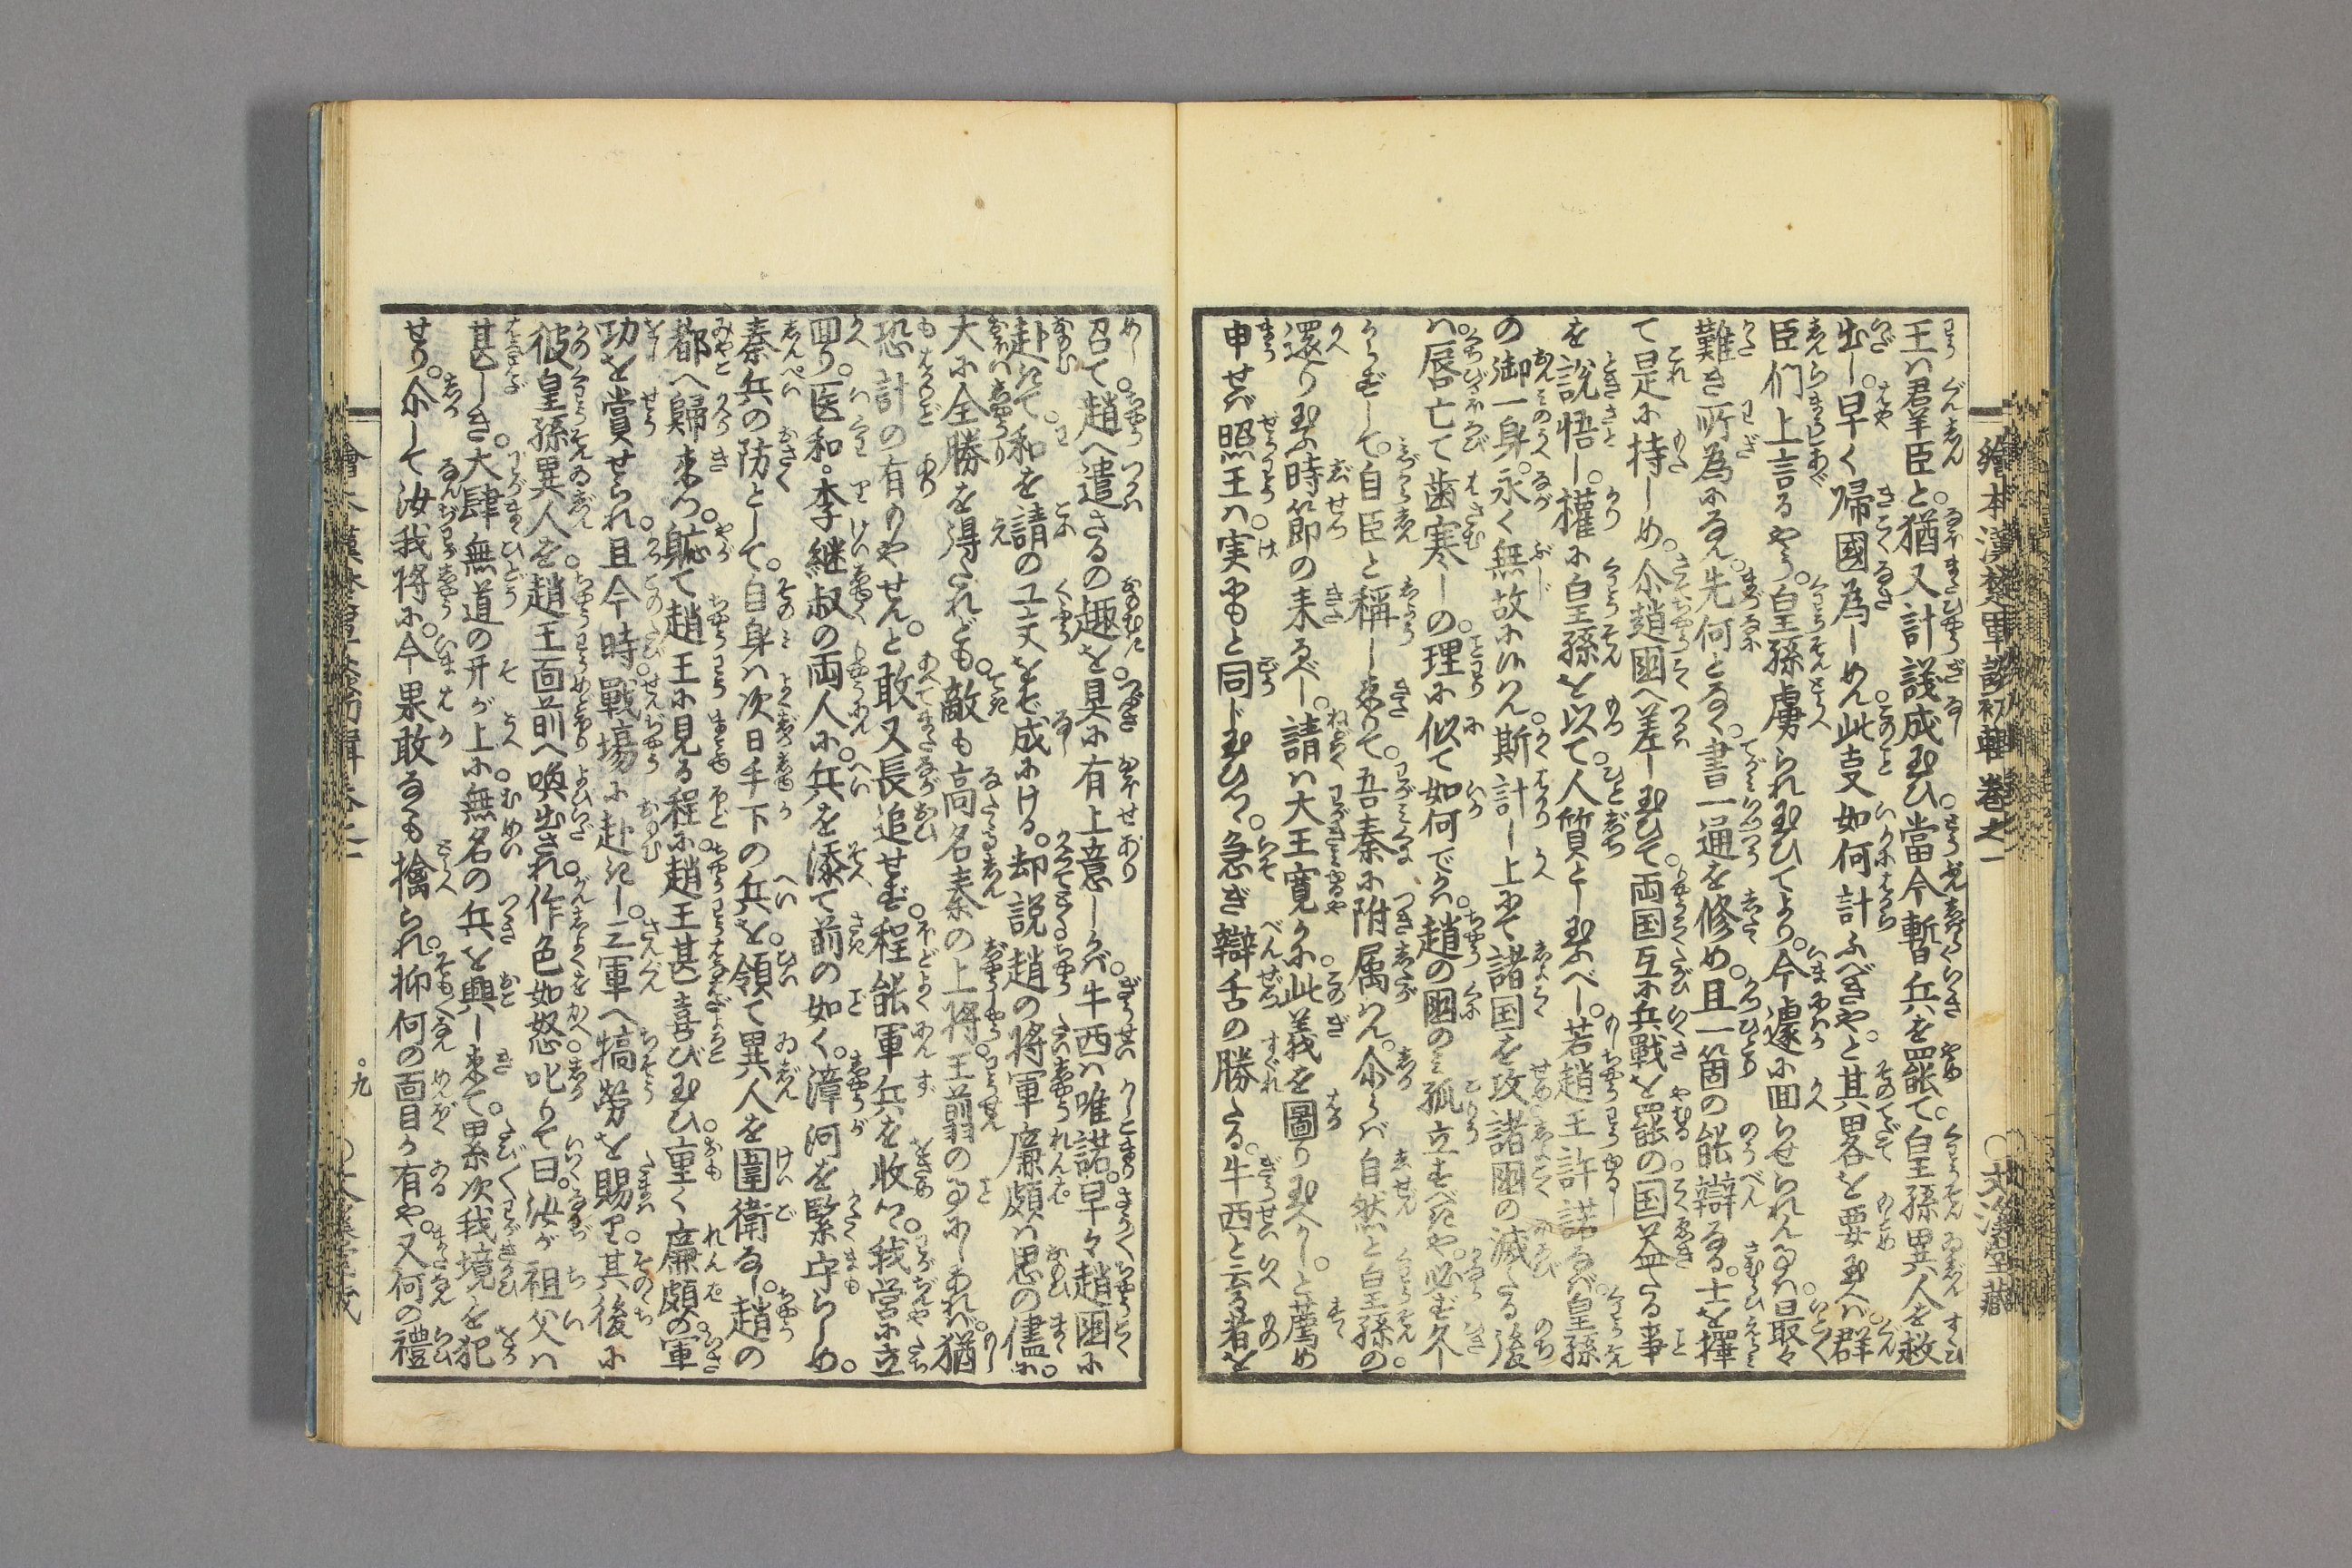 繪本漢楚軍談初輯卷之一
○文溪堂藏
王ハ君羊臣と。猶又計議成玉ひ。當今暫兵を罷て。皇孫異人を救
出し。早く帰國為しめん。此支如何計ふべきや。と其畧を要玉へバ。群
臣们上言るやう。皇孫虜られ玉ひてより。今遽に回らせられん事ハ。最々
難き所為になん。先何となく。書一通を修め。且一箇の能辯なる。士を擇
て是に持しめ。尒趙國へ差し玉ひて。両国互に兵戰を罷の国益たる事
を説悟し。權に皇孫を以て。人質とし玉ふべし。若趙王許諾なバ。皇孫
の御一身。永く無故に候ハん。斯計し上にて。諸国を攻諸國の滅たる後
ハ。唇亡て歯寒しの。理に似て如何でか。趙の國のミ孤立すべきや。必ず久し
からずして。自臣と稱し来りて。吾秦に附属せん。尒らバ自然と皇孫の
還り玉ふ時節の来るべし。請ハ大王寛かに。此義を圖り玉へかし。と薦め
申せバ。照王ハ。実にもと同じ玉ひつ。急ぎ辯舌の勝たる。牛西と云る者を
召て。趙へ遣さるの趣を。具に有上意しかバ。牛西ハ唯諾。早々趙國に
赴きて。和を請の工夫をぞ成にける。却説趙の将軍廉頗ハ。思の儘に。
大に全勝を得たれども。敵も高名秦の上将。王翦の事にしあれバ。猶
恐計の有りやせん。と敢又長追せず。程能軍兵を收つ。我営に立
回り。医和。李継叔の両人に。兵を添て前の如く。漳河を緊守らしめ。
秦兵の防として。自身ハ次日手下の兵を。領て異人を圍衛なし。趙の
都へ歸来つ。躯て趙王に見る程に。趙王甚喜び玉ひ。重く廉頗の軍
功を賞せられ。且今時戰塲に赴きし。三軍へ犒勞を賜り。其後に
彼皇孫異人を。趙王面前へ喚出され。作色如怒。叱りて曰。汝が祖父ハ
甚しき。大肆無道の开が上に。無名の兵を興し来て。累次我境を犯
せり。尒して汝我将に。今果敢なくも擒られ。抑何の面目か有や。又何の禮
繪本漢楚軍談初輯卷之一
九